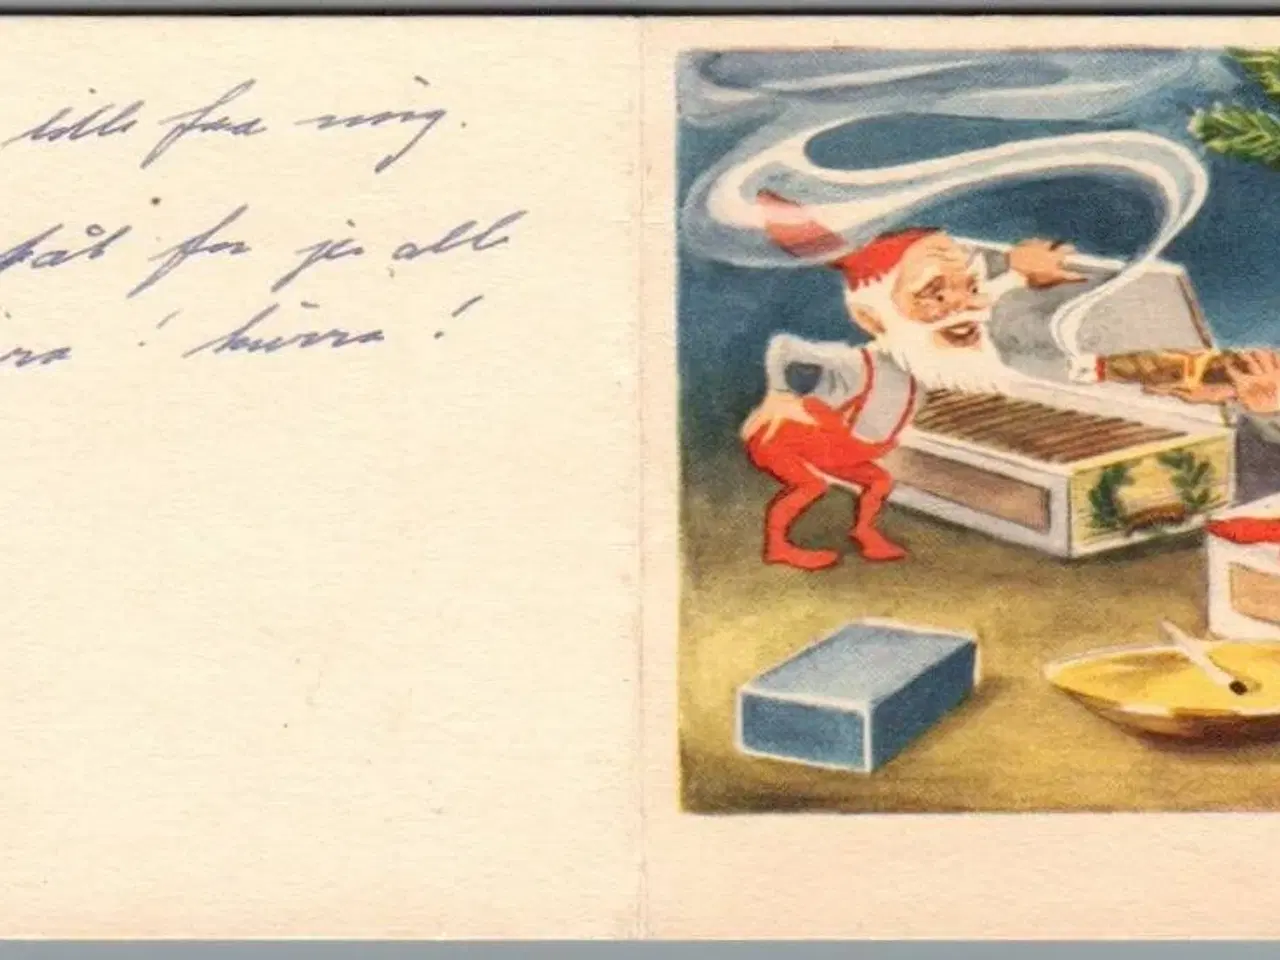 lille fra mig.
kål for jer alle
rra ! hurra !